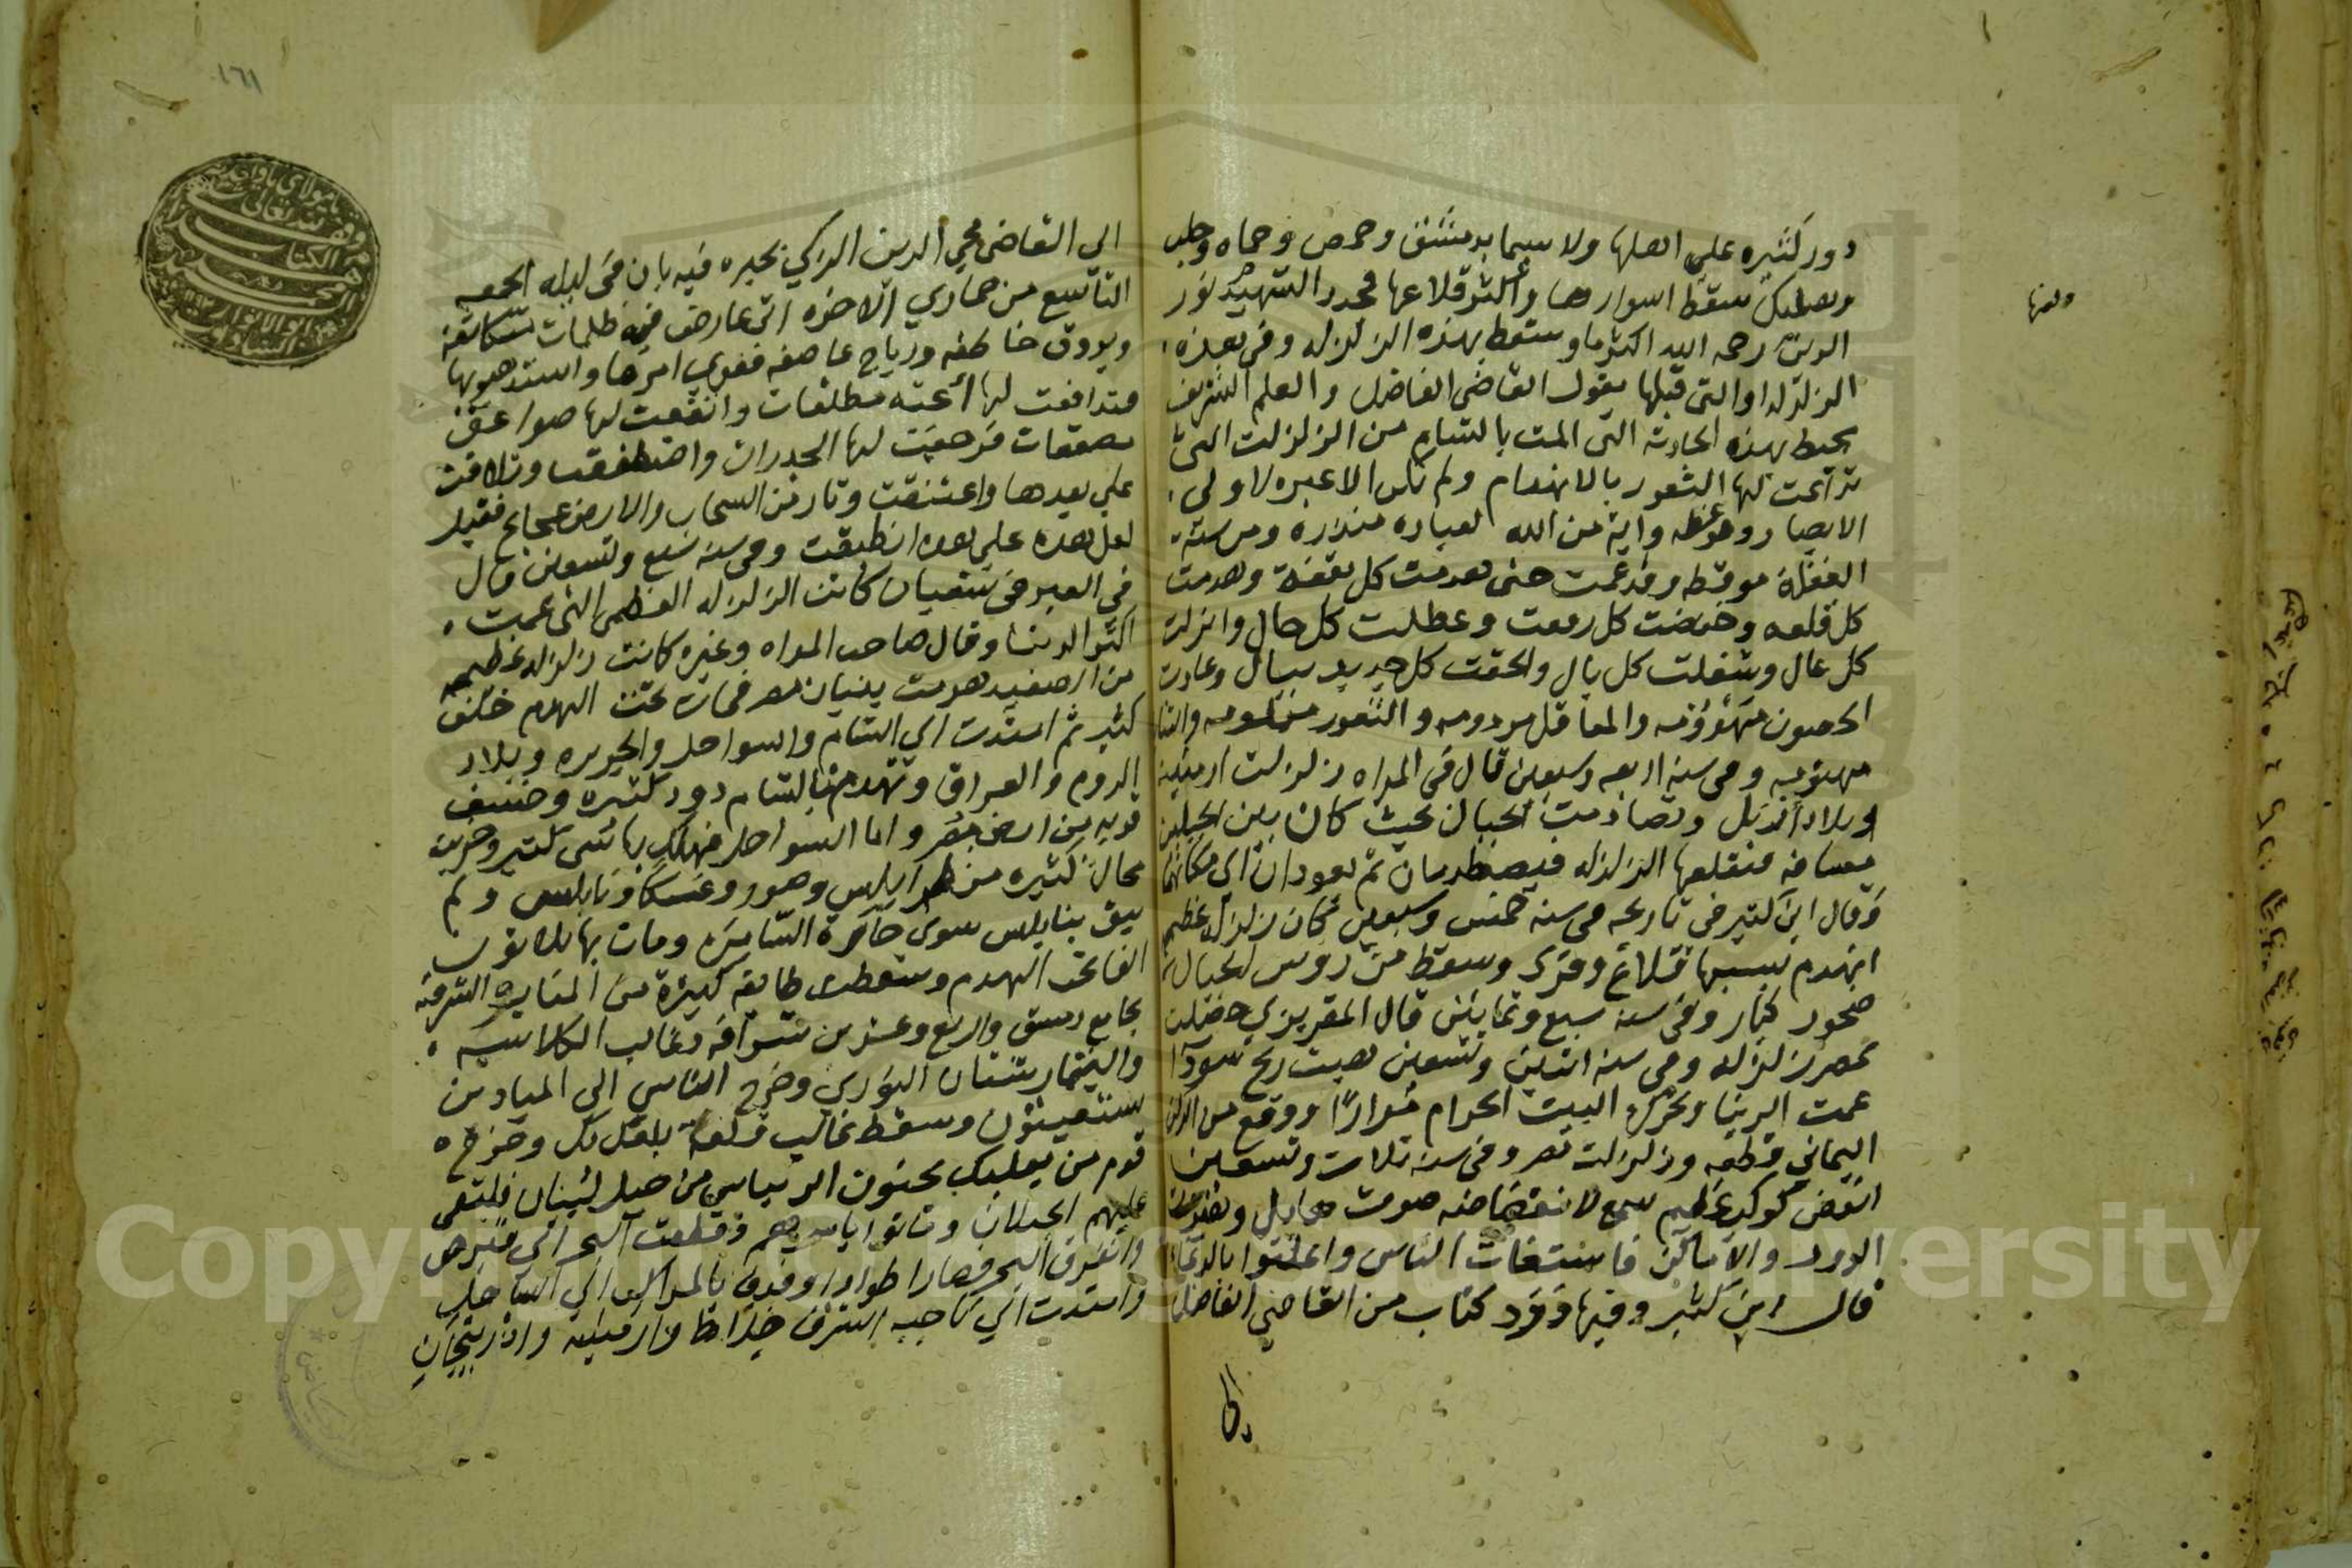 دور كثيره على اهلها ولا سيما بدمشق وحمص وحماه وحلب
وبعلبك سقط اسوارها واكثر قلاعها فجدد الشهيد نور
الدين رحمه الله اكثر ما سقط بهذه الزلزله وفي هذه
الزلزله او التي قبلها يقول القاضي الفاضل والعلم الشريف
يحيط بهذه الحادثه التي المت بالشام من الزلزلت التي
تداعت لها الثغور بالانهدام ولم تكن الا عبره لاولى
الابصار وموعظه واية من الله لعباده منذره ومن سنة
الغفلة موقظه وقد عمت حتى هدمت كل بقعة وهدمت
كل قلعه وخفضت كل رفعت وعطلت كل حال وانزلت
كل عال وشغلت كل بال والحقت كل جديد ببال وعادت
الحصون مهزومه والمعاقل مردومه والثغور مثلومه
مهتومه وفي سنه اربعه وسبعين قال في المراه زلزلت ارمينيه
وبلاد اربل وتصادمت الجبال بحيث كان بين الجبلين
مسافه فتقلعها الزلزله فيصطدمان ثم يعودان الى مكانهما
وقال ابن كثير في تاريخه في سنه خمس وسبعين كان زلزله عظيم
انهدم بسببها قلاع وقرى وسقط من روس الجبال
صخور كبار وفي سنه سبع وثمانين قال المقريزي حصلت
بمصر زلزله وفي سنه اثنين وتسعين هبت ريح سودا
عمت الدنيا وتحرك البيت الحرام مرارا ووقع من الركن
اليماني قطعه وزلزلت مصر وفي سنه ثلاث وتسعين
انقض كوكب عظيم سمع لانقضاضه صوت هايل واهتزت
الدور والاماكن فاستغاث الناس واعلنوا بالدعا
قال ابن كثير وفيها ورد كتاب من القاضي الفاضل
الى
١٦١
الى القاضي محي الدين الزكي يخبره فيه بان في ليله الجمعه
التاسع من جمادي الاخره اتى عارض فيه ظلمات متكاثفه
وبروق خاطفه ورياح عاصفه فقوي امرها واشتد هبوبها
فتدافعت لها اعنه مطلقات وارتفعت لها صواعق
مصعقات فرجفت لها الجدران واصطفقت وتلاقت
على بعدها واعتنقت وثار من السحاب والارض عجاج فقيل
لعل هذه على هذه انطبقت وفي سنه سبع وتسعين قال
في العبر في شعبان كانت الزلزله العظمى التي عمت
اكثر الدنيا وقال صاحب المراه وغيره كانت زلزله عظيمه
من الصعيد هدمت بنيان مصر فمات تحت الهدم خلق
كثير ثم امتدت الى الشام والسواحل والجزيره وبلاد
الروم والعراق وتهدم بالشام دور كثيره وخسف
قريه من ارض بصر واما السواحل فهلك بها شي كثير وخربت
محال كثيره من طرابلس وصور وعكا ونابلس ولم
يبق بنابلس سوى حارة السامره ومات بها ثلاثون
الفا تحت الهدم وسقطت طايفه كبيرة من المناره الشرقيه
بجامع دمشق واربع وعشرين شرافه وغالب الكلاسه
والبيمارستان النوري وخرج الناس الى الميادين
يستغيثون وسقط غالب قلعه بعلبك وخرج
قوم من بعلبك يجنون الريباس من جبل لبنان فالتقى
عليهم الجبلان وماتوا باسرهم وقطعت البحر الى قبرص
وانفرق البحر فصار اطوادا وقذف بالمراكب الى الساحل
وامتدت الى ناحيه الشرق خلاط وارمينيه واذربيجان